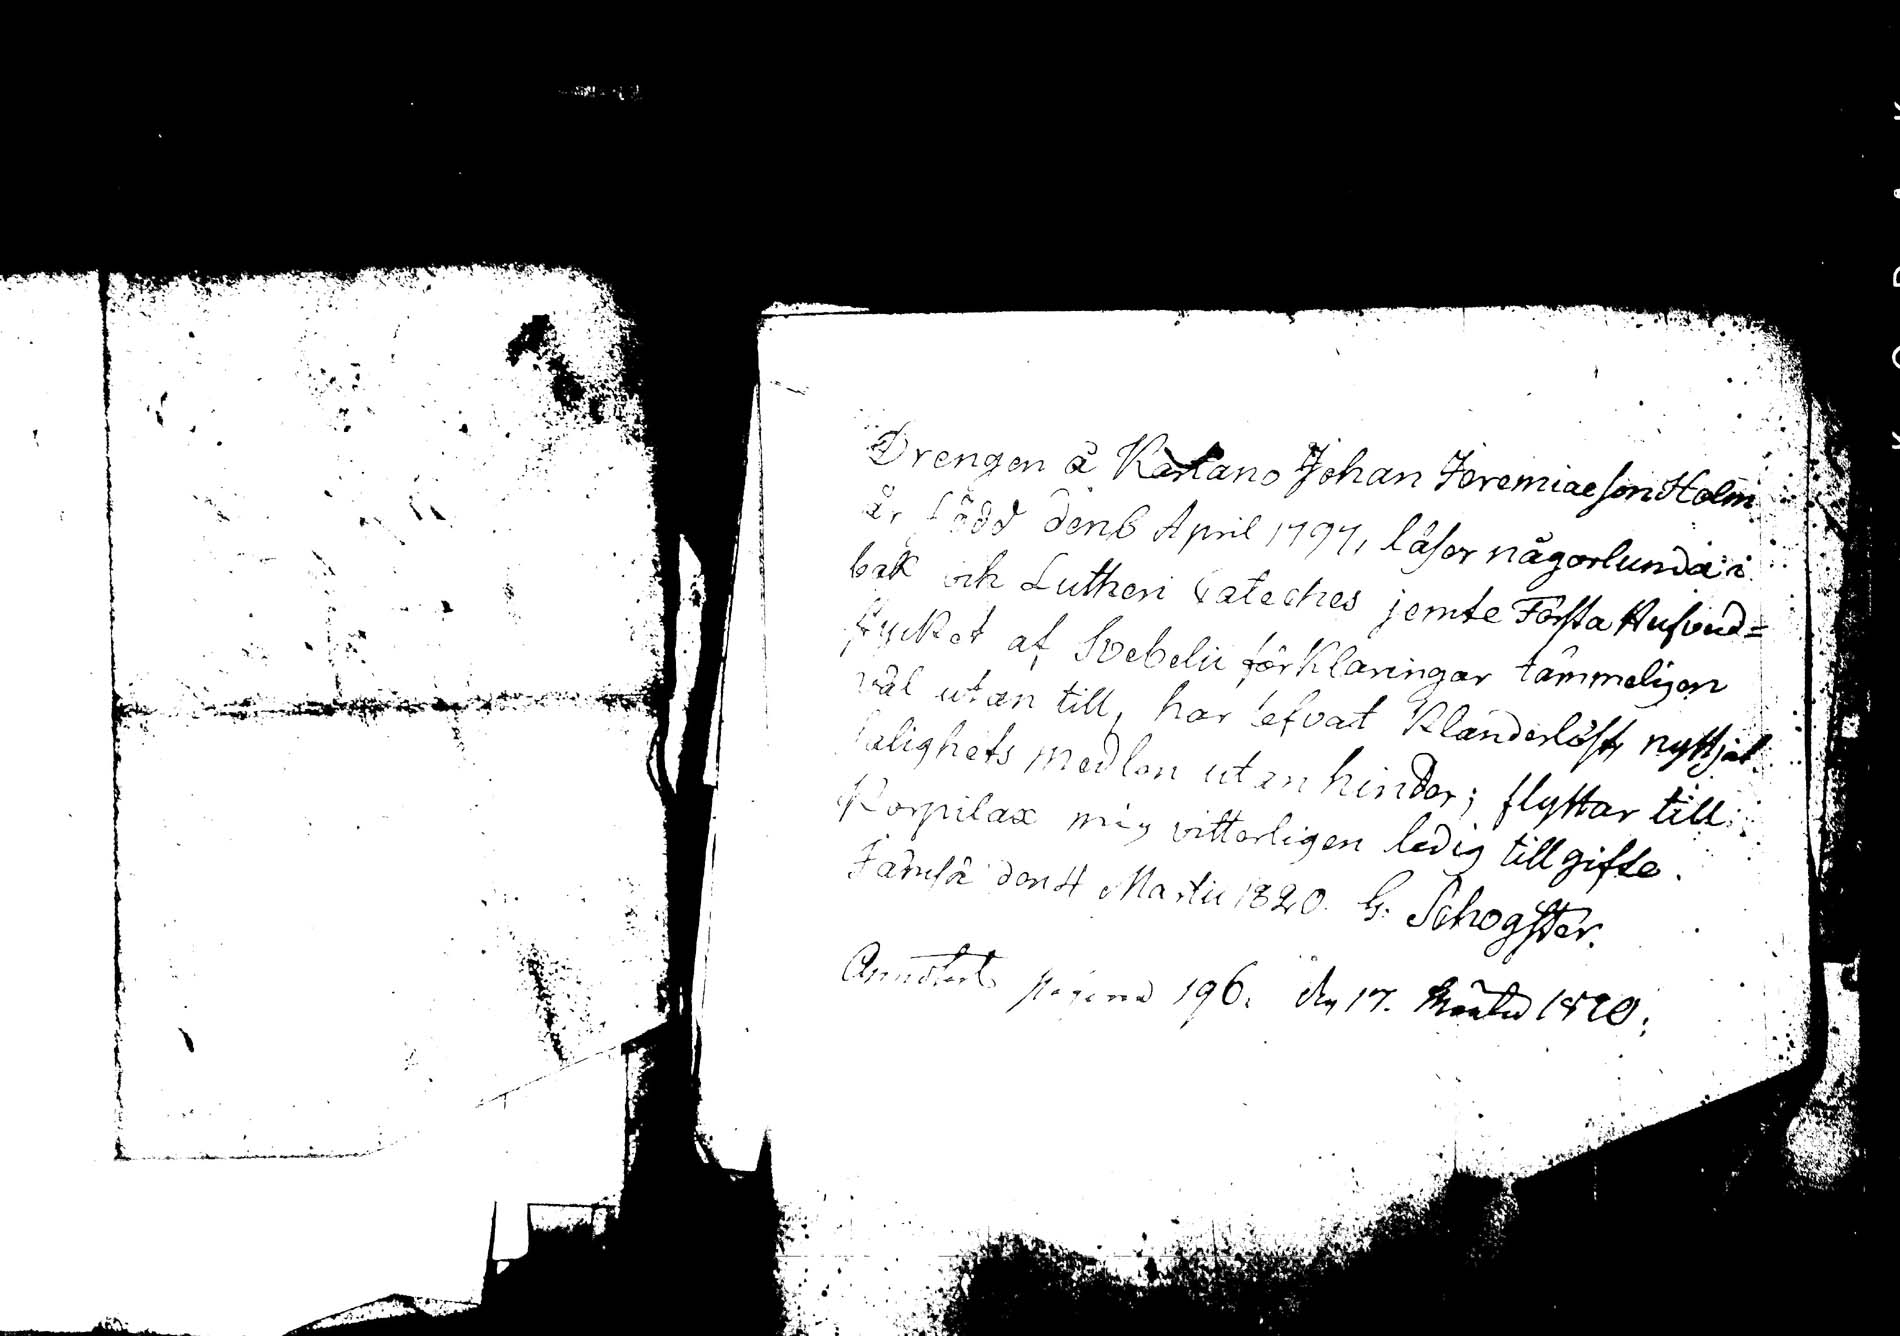 Drengen å Kartano Johan Jeremiaeson Holm
är född den 6 April 1797, läser någorlunda i
bok och Lutheri Cateches jemte Första Hufvud=
stycket af Svebelii förklaringar tämmeligen
väl utan till, har lefvat klanderlöst, nyttjat
salighets medlen utan hinder; flyttar till
Korpilax mig vitterligen ledig till gifte.
Jämsä den 4 Martii 1820. G. Schogster.
Annoterts pagina 196. den 17. Martii 1820.